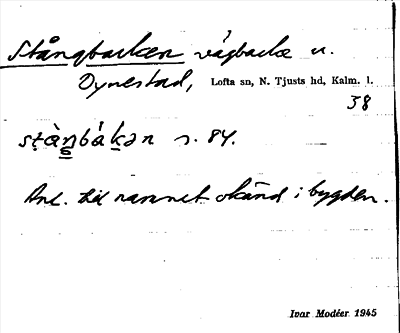 Stångbacken vägbacke n.
Dynestad, Lofta sn, N. Tjusts hd, Kalm. l.
38
stàŋbákən s. 84.
Anl. till namnet okänd i bygden.
Ivar Modéer 1945